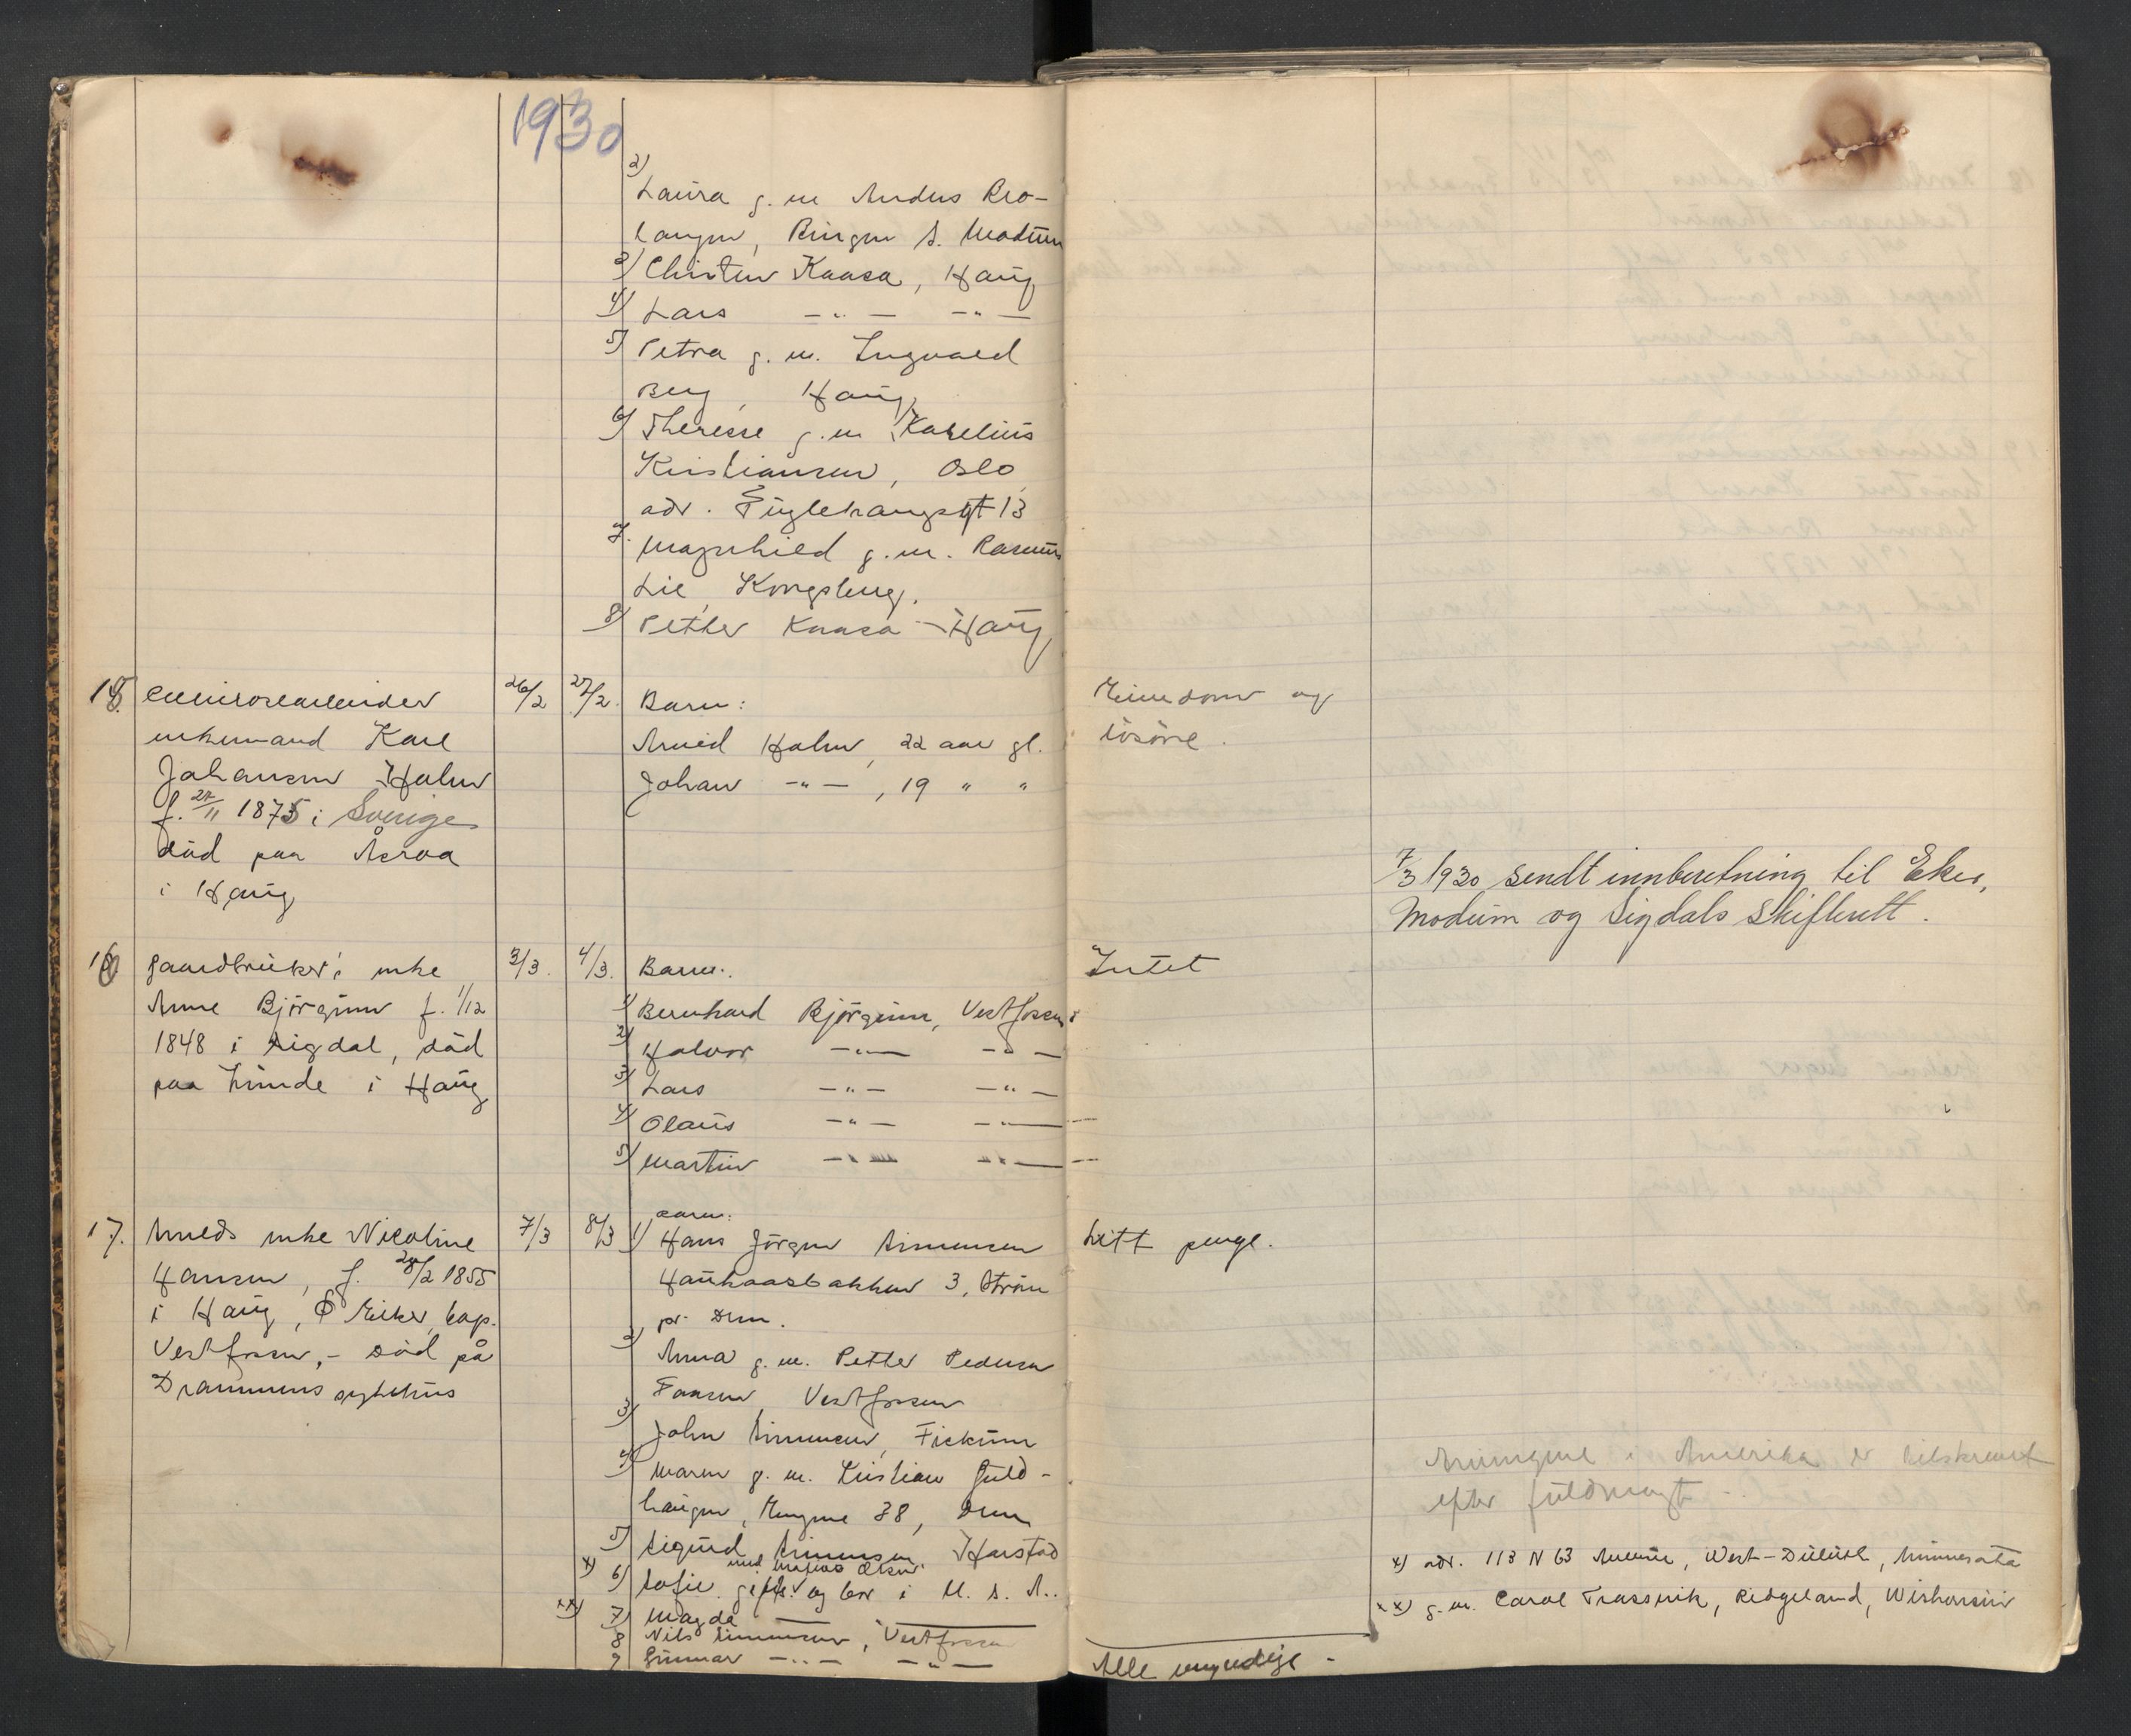 1930
2) Laura g. m Anders Bro-
langen, Bingen s. Modum
3) Christen Kaasa, Haug
4) Lars —"— —"—
5) Petra g. m. Ingvald
Berg, Haug,
6) Therese g. m Karelius
Kristiansen, Oslo
adr. Fuglehaugsgt 13
7. Magnhild g. m. Rasmus
Lie, Kongsberg.
8) Petter Kaasa - Haug
15. 26/2 27/2. Barn: Eiendom og
enkemand Karl Arvid Holm, 22 aar gl. lösöre.
Johansen Holm Johan —"—, 19 " "
f. 27/11 1875 i Sverige
död paa Åsroa
i Haug
7/3 1930 sendt innberetning til Eker,
Modum og Sigdals skifterett.
16 Gaardbruker's enke 3/3. 4/3. Barn: Intet
Anne Björgum f. 1/12 1) Bernhard Björgum, Vestfossen
1848 i Sigdal, död 2) Halvor —"— —"—
paa Lunde i Haug 3) Lars —"— —"—
4) Olaus —"— —"—
5) Martin —"— —"—
17. enke Nicoline 7/3 8/3 Barn: Litt penge.
1) Hans Jörgen Simensen
Hansen, f. 28/2 1855 3, Ström
i Haug, Ö Eiker, pr. Drm.
Vestfossen, - död på 2) Anna g. m. Petter Pedersen
Drammens sykehus Faasen, Vestfossen
3) John Simensen, Fiskum
4) Maren g. m. Kristian Guld-
haugen, 38, Drm
5) Sigurd Simensen, Harstad
x) 6) Sofie gift med Mathias Olsen og bor i U. S. A..
xx) 7) Magda —
8 Nils Simensen, Vestfossen
9 Gunnar —"— —"—
Alle myndige -
i Amerika er tilskrevet
efter fuldmagt -
x) adr. 113 N 63 Avenue, West-Duluth, Minnesota
xx) g. m. Carol Trassnik, Ridgeland, Wiskonsin